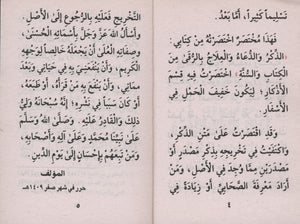 تَسْلِيماً كَثِيراً، أَمَّا بَعْدُ.
فَهَذَا مُخْتَصَرٌ اخْتَصَرْتُهُ مِنْ كِتَابِي:
«الذِّكْرُ وَالدُّعَاءُ وَالْعِلَاجُ بِالرُّقَى مِنَ
الْكِتَابِ وَالسُّنَّةِ» اخْتَصَرْتُ فِيهِ قِسْمَ
الْأَذْكَارِ؛ لِيَكُونَ خَفِيفَ الْحَمْلِ فِي
الْأَسْفَارِ.
وَقَدِ اقْتَصَرْتُ عَلَى مَتْنِ الذِّكْرِ،
وَاكْتَفَيْتُ فِي تَخْرِيجِهِ بِذِكْرِ مَصْدَرٍ أَوْ
مَصْدَرَيْنِ مِمَّا وُجِدَ فِي الْأَصْلِ، وَمَنْ
أَرَادَ مَعْرِفَةَ الصَّحَابِيِّ أَوْ زِيَادَةً فِي
٤
التَّخْرِيجِ فَعَلَيْهِ بِالرُّجُوعِ إِلَى الْأَصْلِ.
وَأَسْأَلُ اللهَ عَزَّ وَجَلَّ بِأَسْمَائِهِ الْحُسْنَى،
وَصِفَاتِهِ الْعُلَى أَنْ يَجْعَلَهُ خَالِصاً لِوَجْهِهِ
الْكَرِيمِ، وَأَنْ يَنْفَعَنِي بِهِ فِي حَيَاتِي وَبَعْدَ
مَمَاتِي، وَأَنْ يَنْفَعَ بِهِ مَنْ قَرَأَهُ، أَوْ طَبَعَهُ،
أَوْ كَانَ سَبَباً فِي نَشْرِهِ؛ إِنَّهُ سُبْحَانَهُ وَلِيُّ
ذَلِكَ، وَالْقَادِرُ عَلَيْهِ. وَصَلَّى اللهُ وَسَلَّمَ
عَلَى نَبِيِّنَا مُحَمَّدٍ وَعَلَى آلِهِ وَأَصْحَابِهِ،
وَمَنْ تَبِعَهُمْ بِإِحْسَانٍ إِلَى يَوْمِ الدِّينِ.
المؤلف
حرر في شهر صفر ١٤٠٩هـ
٥